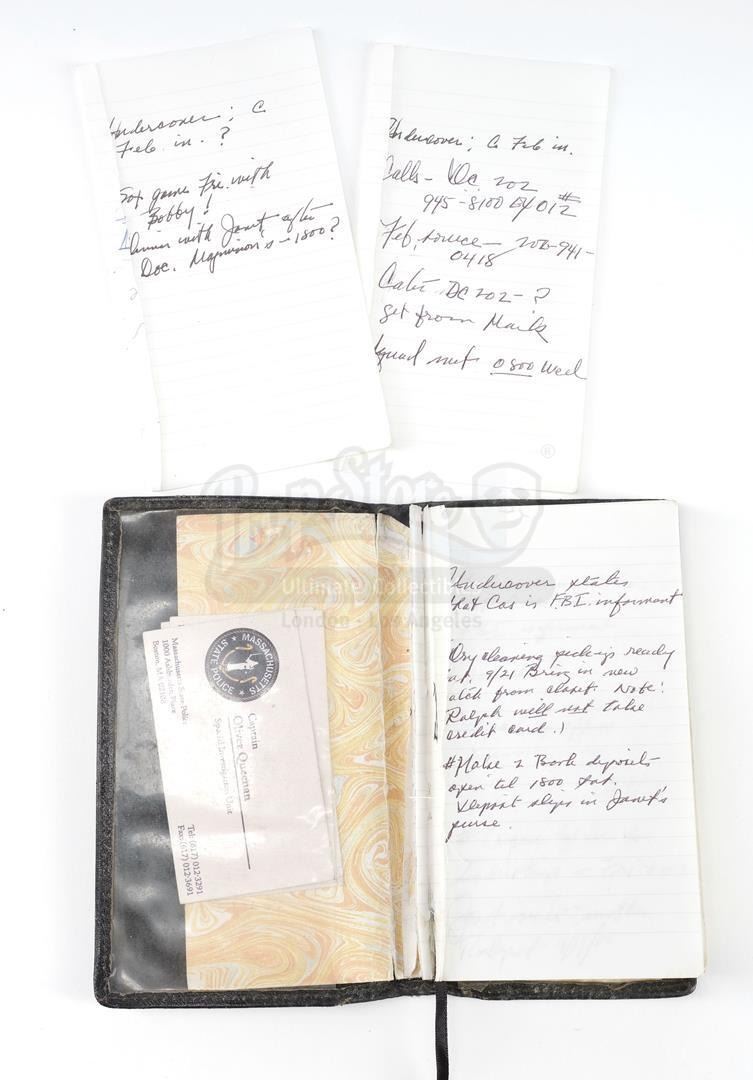 Undercover; C
Feb. in. ?
Sox game Fri. with
Bobby!
Dinner with Janet after
Doc. Magninson's - 1800?
Undercover; C Feb in.
Calls - DC 202
945-8100 #012
Feb. source - 200-941-
0418
DC 202- ?
get from Mark
Squad mat 0800 Wed
PropStore
®
Ultimate Collectibles
London - Los Angeles
Undercover states
that Cos is F.B.I. informant
Dry cleaning pickup ready
at. 9/21 Bring in new
from closet. Note!
Ralph will not take
credit card.)
#Make 2 Bank deposits
open til 1800 Sat.
Deposit slips in Janet's
purse.
MASSACHUSETTS
STATE POLICE
Captain
Oliver Queenan
Special Investigation Unit
Massachusetts State Police
1000 Place
Boston, MA
Tel: (617) 012-3291
Fax: (617) 012-3691